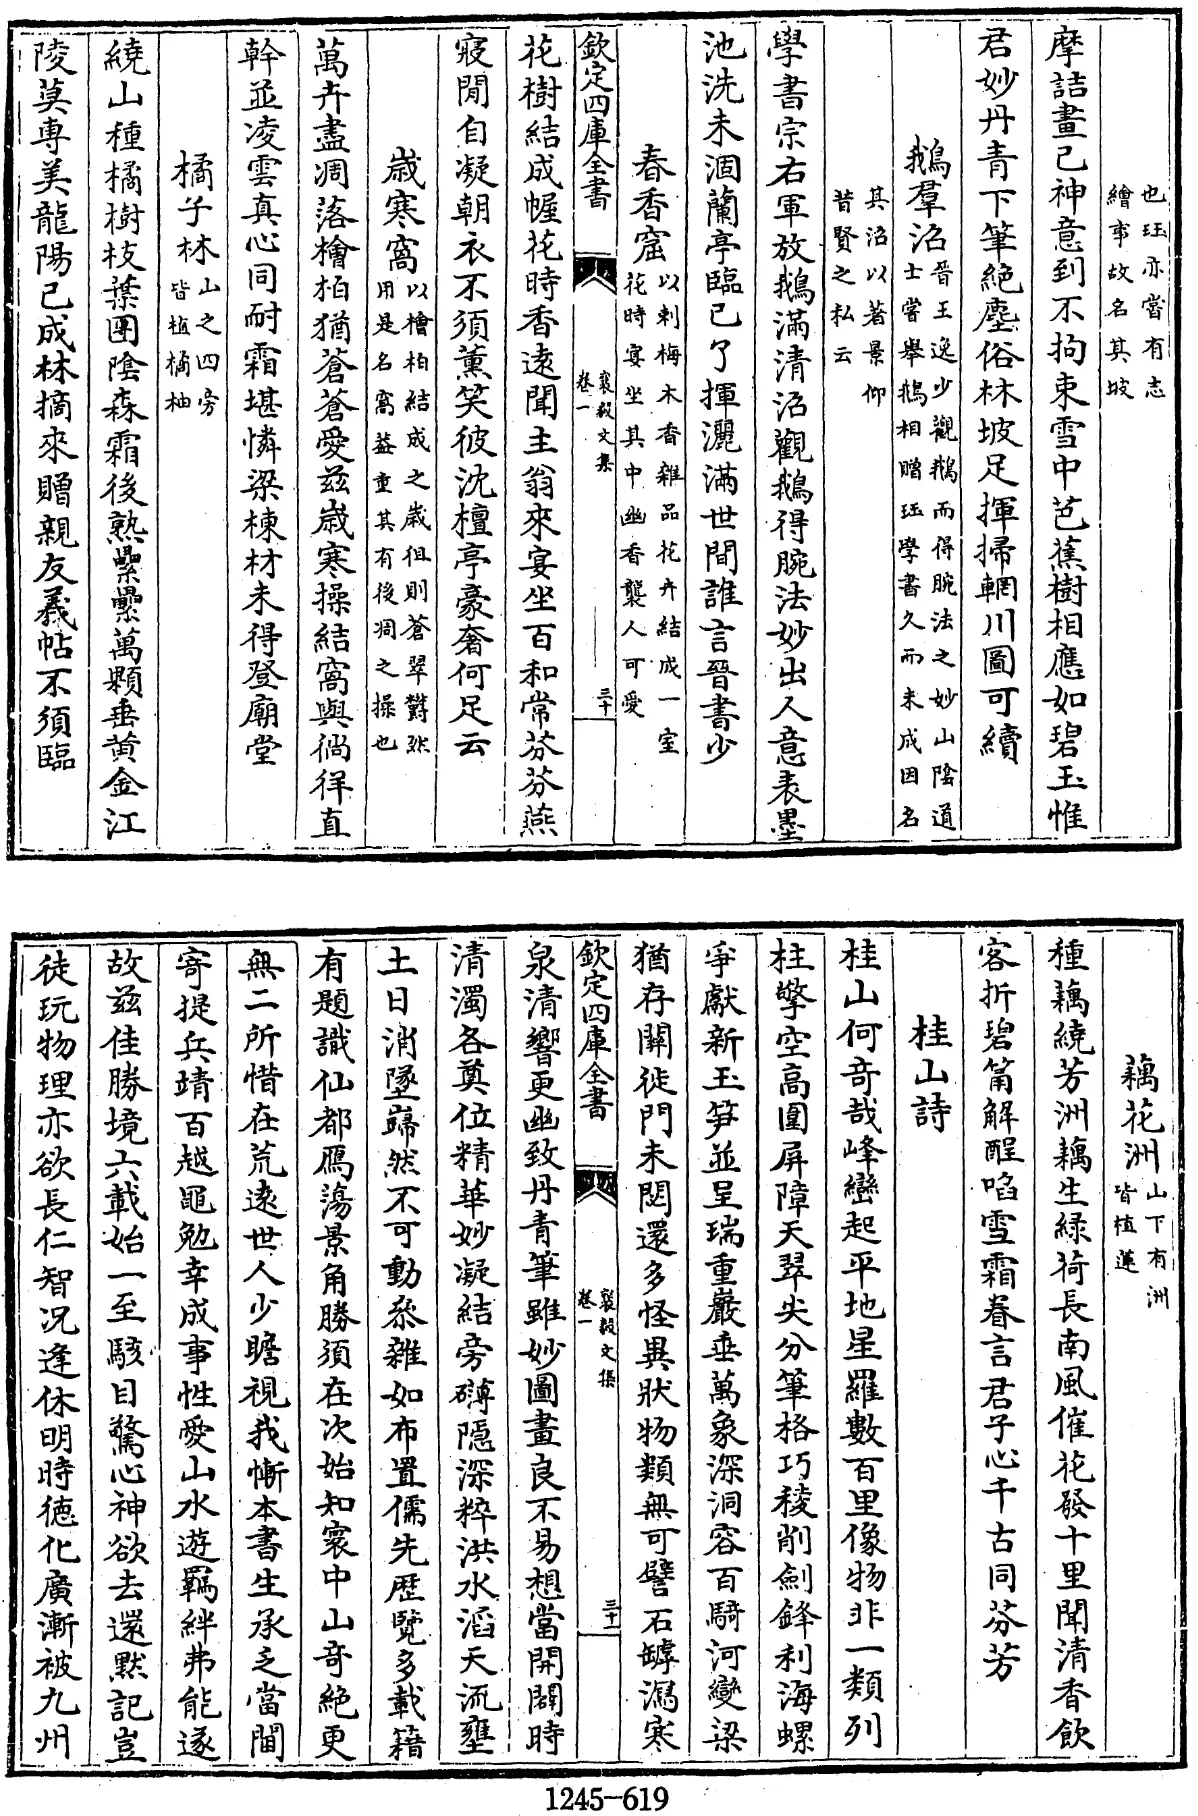 也珏亦當有志
繪事故名其坡
摩詰畫已神意到不拘束雪中芭蕉樹相應如碧玉惟
君妙丹青下筆絕塵俗林坡足揮掃輞川圖可續
鵝羣沼晉王逸少觀鵝而得腕法之妙山陰道
士嘗舉鵝相贈珏學書久而未成因名
其沼以著景仰
昔賢之私云
學書宗右軍放鵝滿清沼觀鵝得腕法妙出人意表墨
池洗未涸蘭亭臨已了揮灑滿世間誰言晉書少
春香窟以刺梅木香雜品花卉結成一室
花時宴坐其中幽香襲人可愛
欽定四庫全書
襄毅文集
卷一
三十
花樹結成幄花時香遠聞主翁來宴坐百和常芬芬燕
寢閒自凝朝衣不須薰笑彼沈檀亭豪奢何足云
歲寒窩以檜柏結成之歲徂則蒼翠鬱然
用是名窩葢重其有後凋之操也
萬卉盡凋落檜柏猶蒼蒼愛兹歲寒操結窩與徜徉直
幹並凌雲真心同耐霜堪憐梁棟材未得登廟堂
橘子林山之四旁
皆植橘柚
繞山種橘樹枝葉團陰森霜後熟纍纍萬顆垂黄金江
陵莫專美龍陽已成林摘來贈親友義帖不須臨
藕花洲山下有洲
皆植蓮
種藕繞芳洲藕生緑荷長南風催花發十里聞清香飲
客折碧筩解酲啗雪霜眷言君子心千古同芬芳
桂山詩
桂山何奇哉峰巒起平地星羅數百里像物非一類列
柱擎空高圍屏障天翠尖分筆格巧稜削劍鋒利海螺
爭獻新玉笋並呈瑞重巖垂萬象深洞容百騎河變梁
猶存關徙門未閎還多怪異狀物類無可譬石罅瀉寒
欽定四庫全書
襄毅文集
卷一
三十一
泉清響更幽致丹青筆雖妙圖畫良不易想當開闢時
清濁各奠位精華妙凝結旁礴隱深粹洪水滔天流壅
土日消墜巋然不可動叅雜如布置儒先歴覽多載籍
有題識仙都鴈蕩景角勝須在次始知寰中山奇絶更
無二所惜在荒逺世人少瞻視我慚本書生承乏當閫
寄提兵靖百越黽勉幸成事性愛山水遊羈絆弗能遂
故兹佳勝境六載始一至駭目驚心神欲去還黙記豈
徒玩物理亦欲長仁智况逢休明時德化廣漸被九州
1245-619